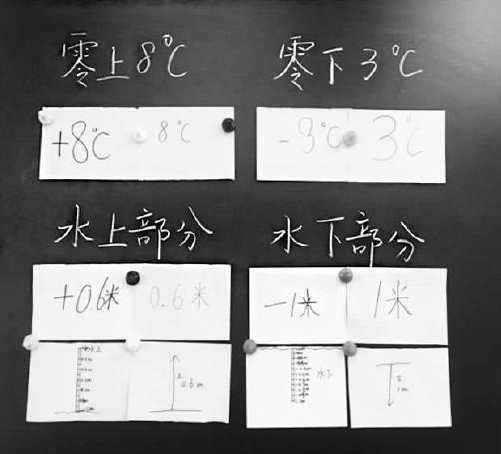 零上8℃ 零下3℃
+8℃ 8℃ -3℃ 3℃
水上部分 水下部分
+0.6米 0.6米 -1米 1米
水上
0.6m
水下
1m